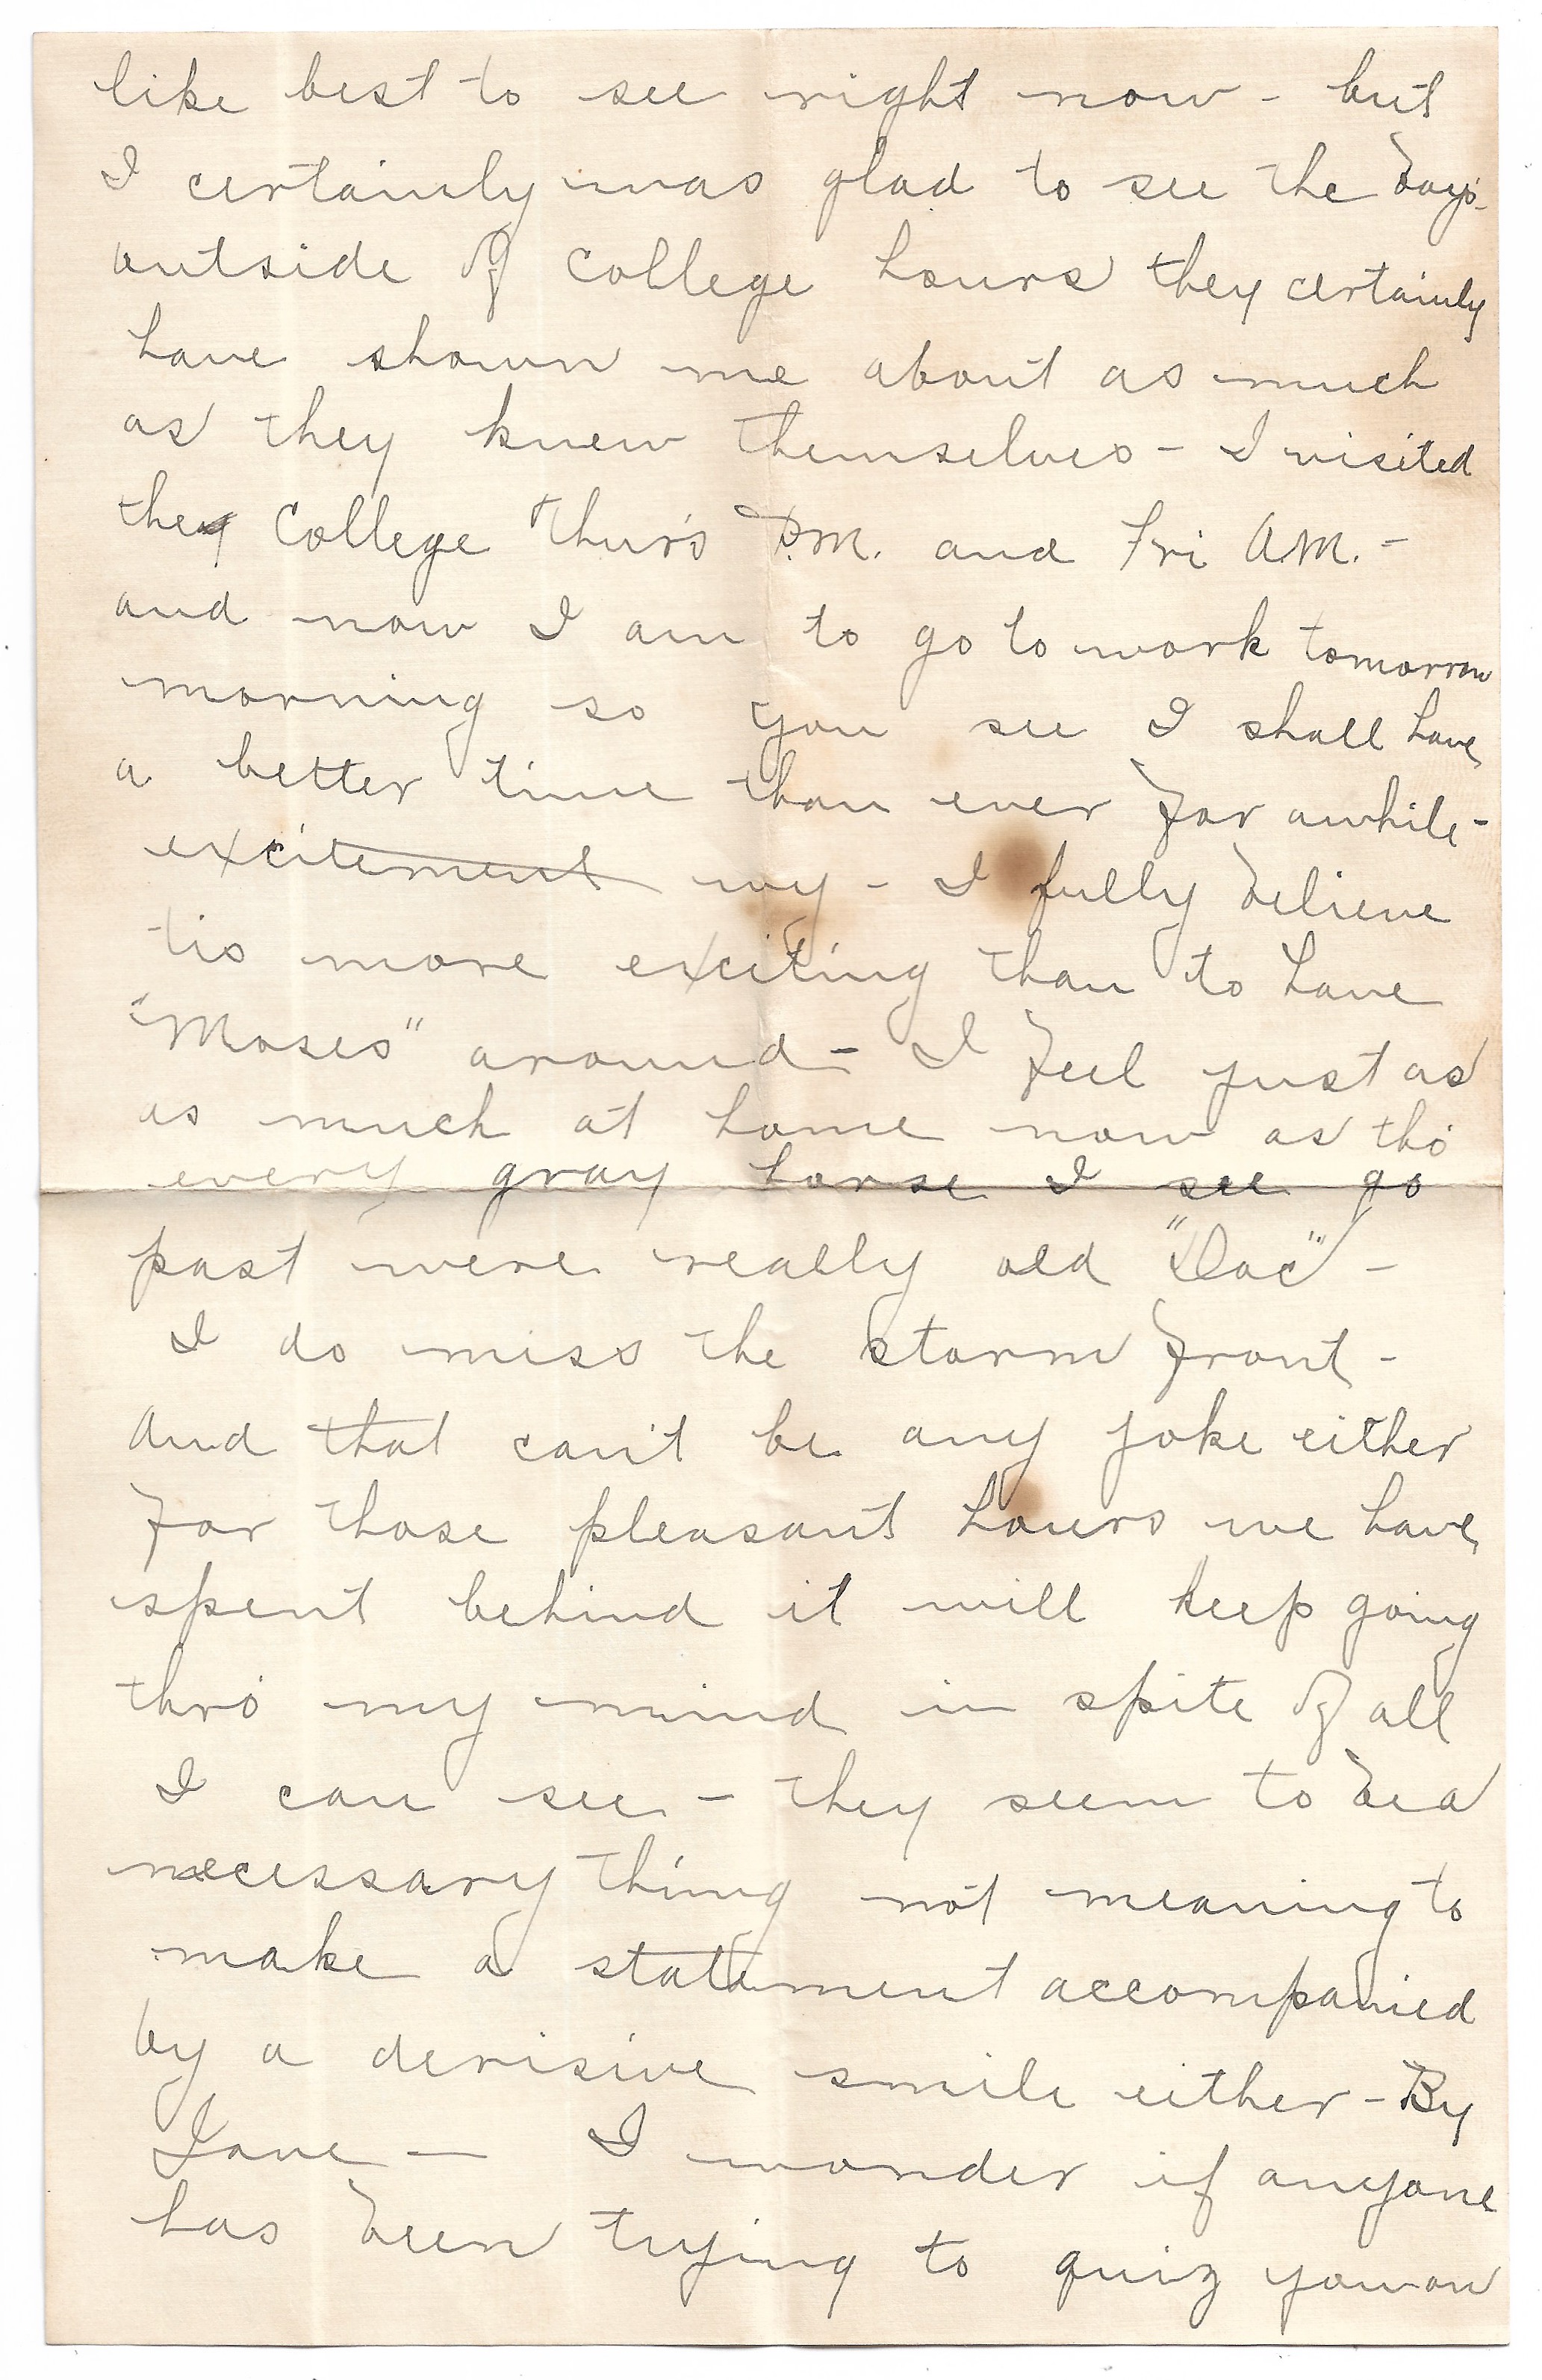 like best to see right now - but
I certainly was glad to see the boys -
outside of college hours they certainly
have shown me about as much
as they knew themselves - I visited
they College Thur's P.M. and Fri A.M. -
and now I am to go to work tomorrow
morning so you see I shall have
a better time than ever for awhile -
excitement wy - I fully believe
tis more exciting than to have
"Moses" around - I feel just as
as much at home now as tho'
every gray horse I see go
past were really old "Doc" -
I do miss the storm front -
and that can't be any joke either
for those pleasant hours we have
spent behind it will keep going
thro' my mind in spite of all
I can see - they seem to be a
necessary thing not meaning to
make a statement accompanied
by a derisive smile either - By
Jove - I wonder if anyone
has been trying to quiz you on